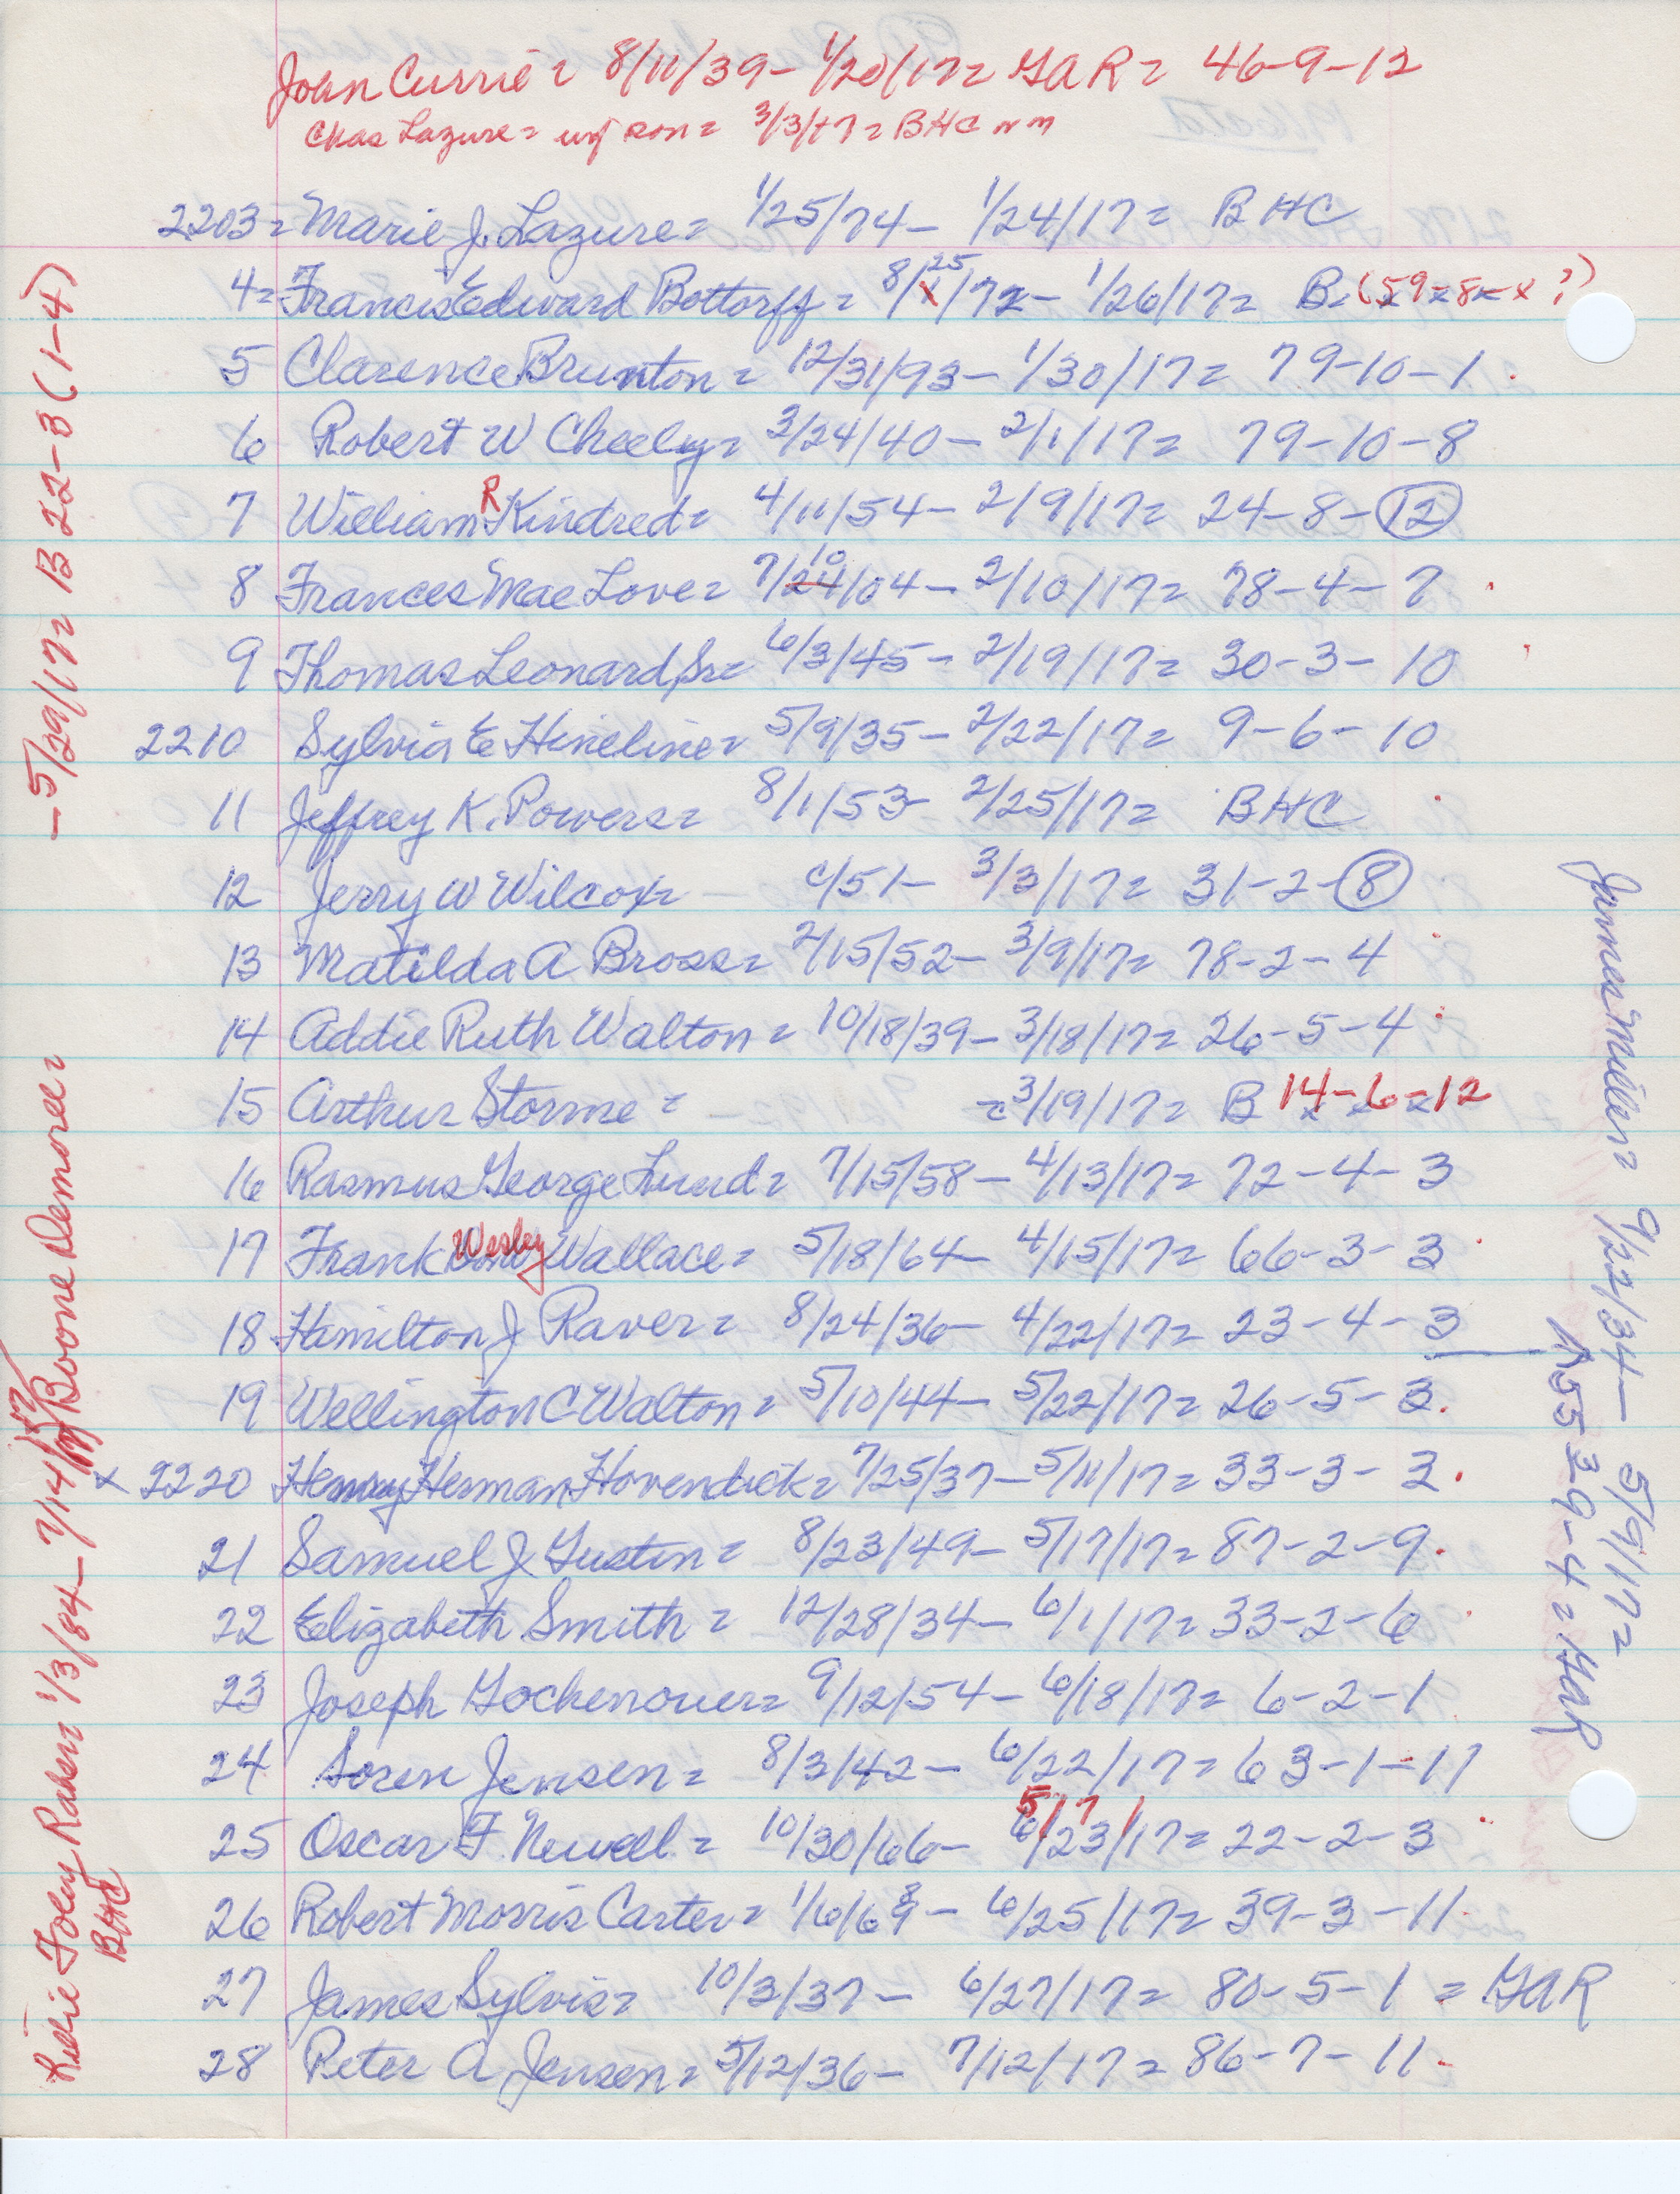 John Currie = 8/11/39 - 1/20/17 = GAR = 46-9-12
Chas Lazure = inf son = 3/3/17 = BHC nm
2203 = Marie J. Lazure = 1/25/74 - 1/24/17 = BHC
4 = Francis Edward Bottorff = 8/25/72 - 1/26/17 = B. (59-8-x?)
5 Clarence Brunton = 12/31/93 - 1/30/17 = 79-10-1
6 Robert W Cheely = 3/24/40 - 2/1/17 = 79-10-8
7 William R Kindred = 4/11/54 - 2/9/17 = 24-8-12
8 Frances Mae Love = 7/24/04 10 - 2/10/17 = 78-4-7
9 Thomas Leonard Sr = 6/3/45 - 2/19/17 = 30-3-10
2210 Sylvia E Hineline = 5/9/35 - 2/22/17 = 9-6-10
11 Jeffrey K. Powers = 8/1/53 - 2/25/17 = BHC
12 Jerry W Wilcox - c/51 - 3/3/17 = 31-2-8
13 Matilda A Bross = 2/15/52 - 3/9/17 = 78-2-4
14 Addie Ruth Walton = 10/18/39 - 3/18/17 = 26-5-4
15 Arthur Storme = = 3/19/17 = B 14-6-12
16 Rasmus George Lund = 7/15/58 - 4/13/17 = 72-4-3
17 Frank Wesley Wallace = 5/18/64 - 4/15/17 = 66-3-3
18 Hamilton J Raver = 8/24/36 - 4/22/17 = 23-4-3
19 Wellington C Walton = 5/10/44 - 5/22/17 = 26-5-3
x 2220 Henry Herman Hovendick = 7/25/37 - 5/11/17 = 33-3-3
21 Samuel J Gustin = 8/23/49 - 5/17/17 = 87-2-9
22 Elizabeth Smith = 12/28/34 - 6/1/17 = 33-2-6
23 Joseph Gochenouer = 9/12/54 - 6/18/17 = 6-2-1
24 Soren Jensen = 8/3/42 - 6/22/17 = 63-1-11
25 Oscar F. Newell = 10/30/66 - 6/23/17 5/7/ = 22-2-3
26 Robert Morris Carter = 1/6/69 8 - 6/25/17 = 39-3-11
27 James Sylvis = 10/3/37 - 6/27/17 = 80-5-1 = GAR
28 Peter A Jensen = 5/12/36 - 7/12/17 = 86-7-11
James Miller = 9/22/34 - 5/9/17 =
55-39-4 = GAR
Foley 1/3/84 - 7/14/17
BHC
Boone Demoree = - 5/29/17 = B 22-3 (1-4)